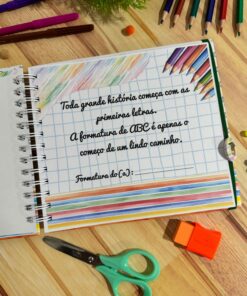 Toda grande história começa com as
primeiras letras.
A formatura de ABC é apenas o
começo de um lindo caminho.
Formatura do(a): ____________